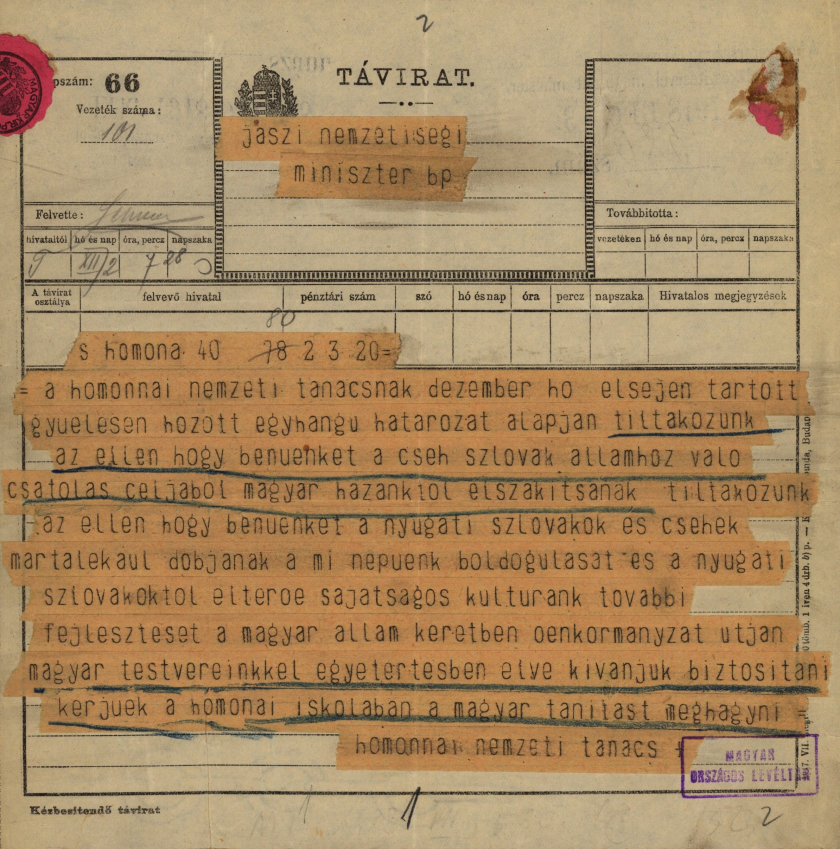 2
66
TÁVIRAT.
Vezeték száma:
101
jaszi nemzetisegi
miniszter bp
Felvette:
Továbbitotta:
hivataltól hó és nap óra, percz napszaka
vezetéken hó és nap óra, percz napszaka
XII/2 7 28
A távirat osztálya felvevő hivatal pénztári szám szó hó és nap óra percz napszaka Hivatalos megjegyzések
80
s homona 40 78 2 3 20=
= a homonnai nemzeti tanacsnak dezember ho elsejen tartott
gyuelesen hozott egyhangu hatarozat alapjan tiltakozunk
az ellen hogy benuenket a cseh szlovak allamhoz valo
csatolas celjabol magyar hazanktol elszakitsanak tiltakozunk
az ellen hogy benuenket a nyugati szlovakok es csehek
martalekaul dobjanak a mi nepuenk boldogulasat es a nyugati
szlovakoktol elteroe sajatsagos kulturank tovabbi
fejleszteset a magyar allam keretben oenkormanyzat utjan
magyar testvereinkkel egyetertesben elve kivanjuk biztositani
kerjuek a homonai iskolaban a magyar tanitast meghagyni =
homonnai nemzeti tanacs +
MAGYAR
ORSZÁGOS LEVÉLTÁR
Kézbesitendő távirat
1
1
2